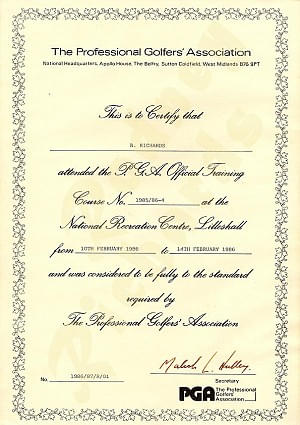 The Professional Golfers' Association
National Headquarters, Apollo House, The Belfry, Sutton Coldfield, West Midlands B76 9PT
This is to Certify that
R. RICHARDS
attended the P.G.A. Official Training
Course No. 1985/86-4 at the
National Recreation Centre, Lilleshall
from 10TH FEBRUARY 1986 to 14TH FEBRUARY 1986
and was considered to be fully to the standard
required by
The Professional Golfers' Association
Secretary
No. 1986/87/R/01
PGA The Professional
Golfers'
Association